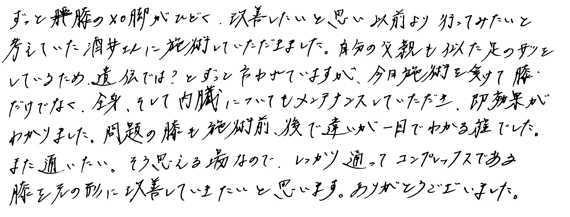 ずっと膝のXO脚がひどく、改善したいと思い以前より行ってみたいと
考えていた酒井さんに施術していただきました。自分の父親も似た足の形を
しているため、遺伝では？とずっと言われていますが、今日施術を受けて膝
だけでなく、全身、そして内臓についてもメンテナンスしていただき、即効果が
わかりました。問題の膝も施術前、後で違いが一目でわかる程でした。
また通いたい。そう思える場なので、しっかり通ってコンプレックスである
膝を元の形に改善していきたいと思います。ありがとうございました。